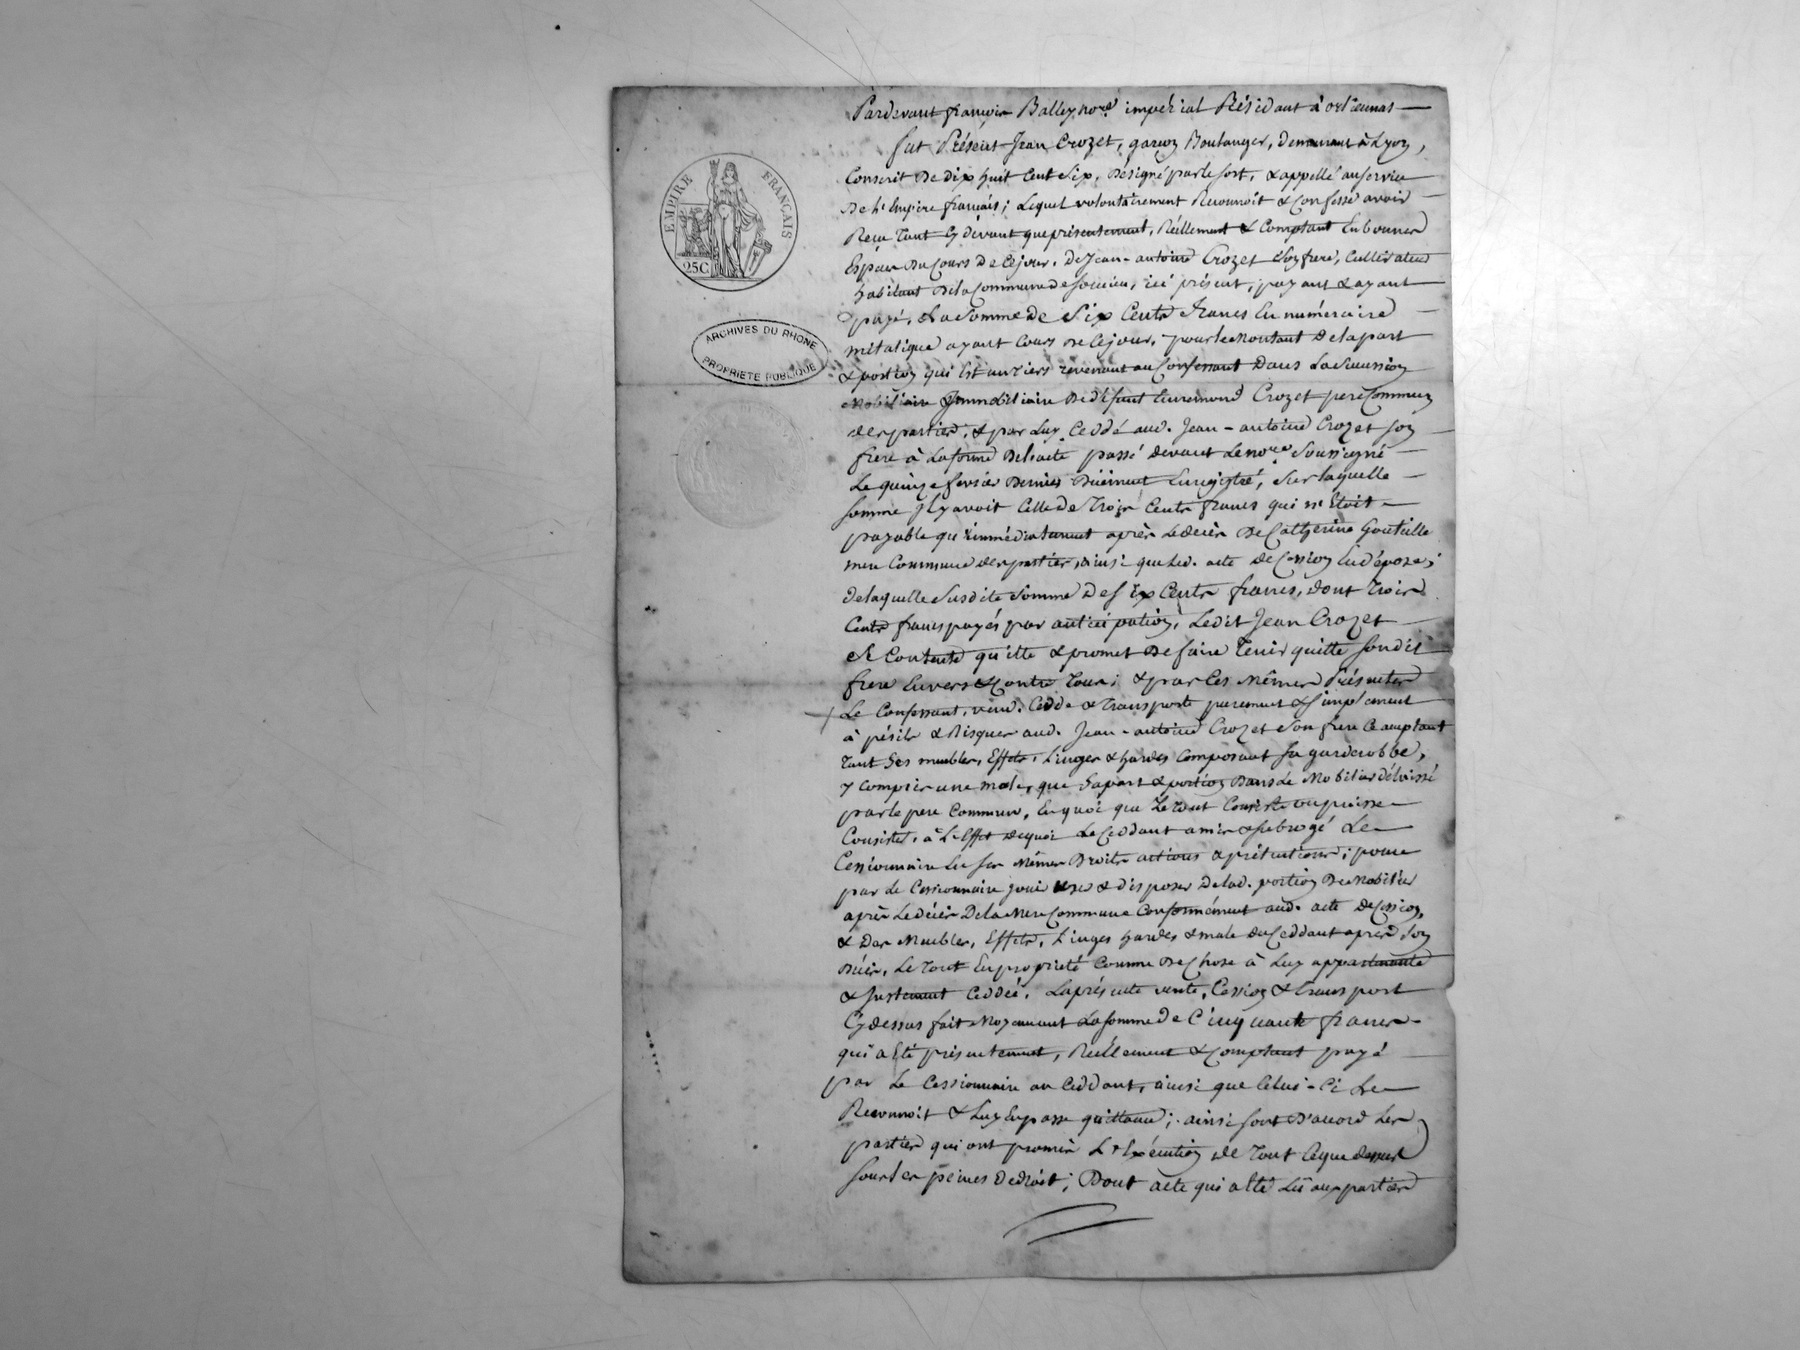 EMPIRE FRANÇAIS
25C
ARCHIVES DU RHONE
PROPRIETE PUBLIQUE
Pardevant françois Balley, nore. impérial Résidant à orliennas
fut Présent Jean Crozet, garçon Boulanger, demeurant à Lyon,
Conscrit De dix huit cent Six, Désigné par le sort, & appellé au service
De L'Empire français; Lequel volontairement Reconnoit & Confesse avoir
Reçu Tant Cy devant que présentement, Réellement & Comptant En bonnes
Espèces Du Cours De Ce jour, De Jean-antoine Crozet Son frere, Cultivateur
habitant De la Commune de Soucieu, ici présent, payant & ayant
payé, La Somme de Six Cents francs En numéraire
métalique ayant Cours De Ce jour, pour le Montant De la part
& portion qui Est un Tiers revenant au Confessant Dans La Succession
Mobiliaire & Immobiliaire De défunt Enremond Crozet pere Commun
des parties, & par Luy Ceddé aud. Jean-antoine Crozet Son
frere à La forme De l'acte passé devant Le nore Soussigné
Le quinze fevrier Dernier Duement Enregistré, Sur laquelle
Somme Il y avoit Celle de Trois Cents francs qui n'Etoit
payable qu'immédiatement après Le decès De Catherine Gouteille
mere Commune des parties, ainsi que Led. acte De Cession En dépose;
de laquelle Susdite Somme De Six Cents francs, dont Trois
Cents francs payés par anticipation, Ledit Jean Crozet
Se Contente quitte & promet De faire Tenir quitte Sondit
frere Envers & Contre Tous; & par Ces Mêmes Présentes
Le Confessant, vend, Cedde & Transporte purement & Simplement
à périls & Risques aud. Jean-antoine Crozet Son frere Ce acceptant
Tant Ses meubles, Effets, Linges & hardes Composant Sa garderobbe,
y Compris une male, que Sa part & portion Dans Le Mobilier délaissé
par le pere Commun, En quoi que Le Tout Consiste ou puisse
Consister, à L'Effet de quoi Le Ceddant a mis & Subrogé Le
Cessionnaire En Ses Mêmes Droits actions & prétentions; pour
par Le Cessionnaire jouir user & disposer De lad. portion De Mobilier
après Le décès De la Mere Commune Conformément aud. acte De Cession,
& Des Meubles, Effets, Linges hardes & male du Ceddant après Son
Décès, Le Tout En propriété Comme De Chose à Luy appartenante
& Justement Ceddée. La présente vente, Cession & Transport
Cy dessus fait Moyennant La Somme De Cinquante francs
qui a Eté présentement, Réellement & Comptant payé
par Le Cessionnaire au Ceddant, ainsi que Celui-Ci Le
Reconnoit & Luy En passe quittance; ainsi Sont D'accord Les
parties qui ont promis L'Exécution de Tout Ce que dessus
Sous Les peines De droit; Dont acte qui a Eté Lu aux parties